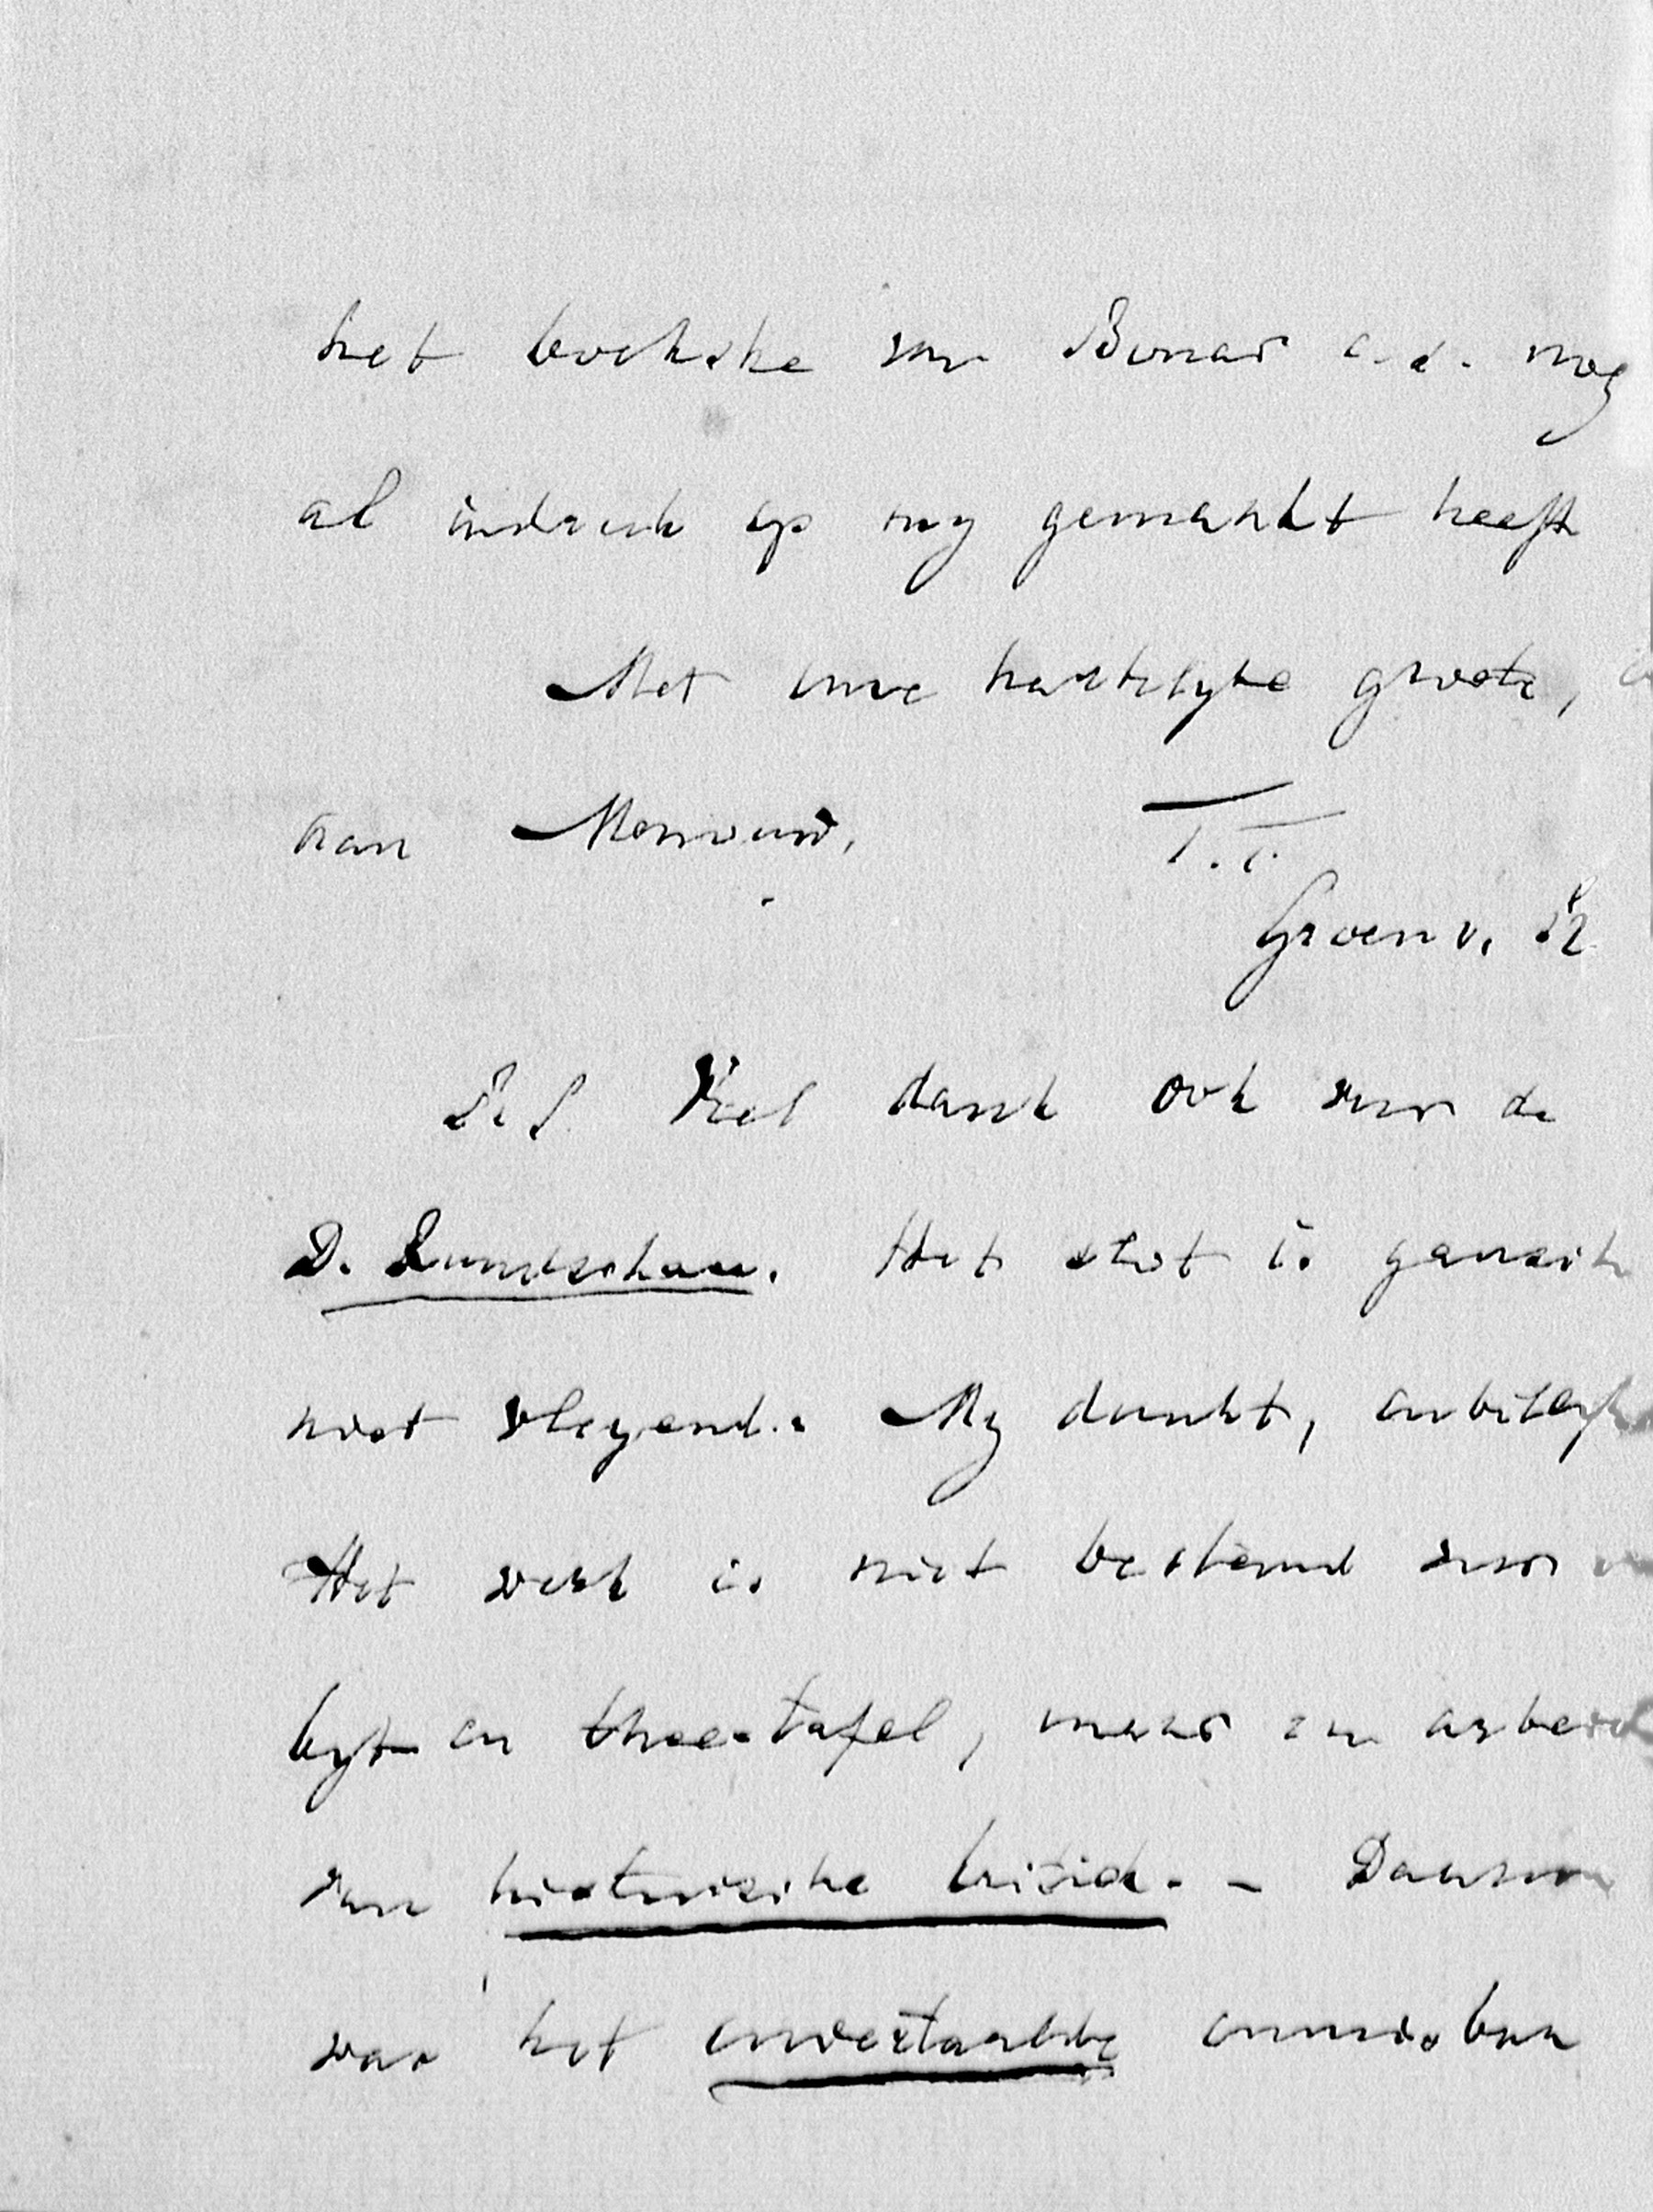 het boekske van Bonar a.d. nog
al indruk op my gemaakt heeft
Met onze hartelyke groete,
aan Mevrouw,
T.T.
Groen v. Pr
P.S. Veel dank ook voor de
D. Rundschau. Het slot is
niet vleyend. My dunkt, onbillyk
Het werk is niet bestemd voor
byt en thee-tafel, maar een arbeid
van historische kritiek. - Daarom
was het onvertaalde onmisbaar